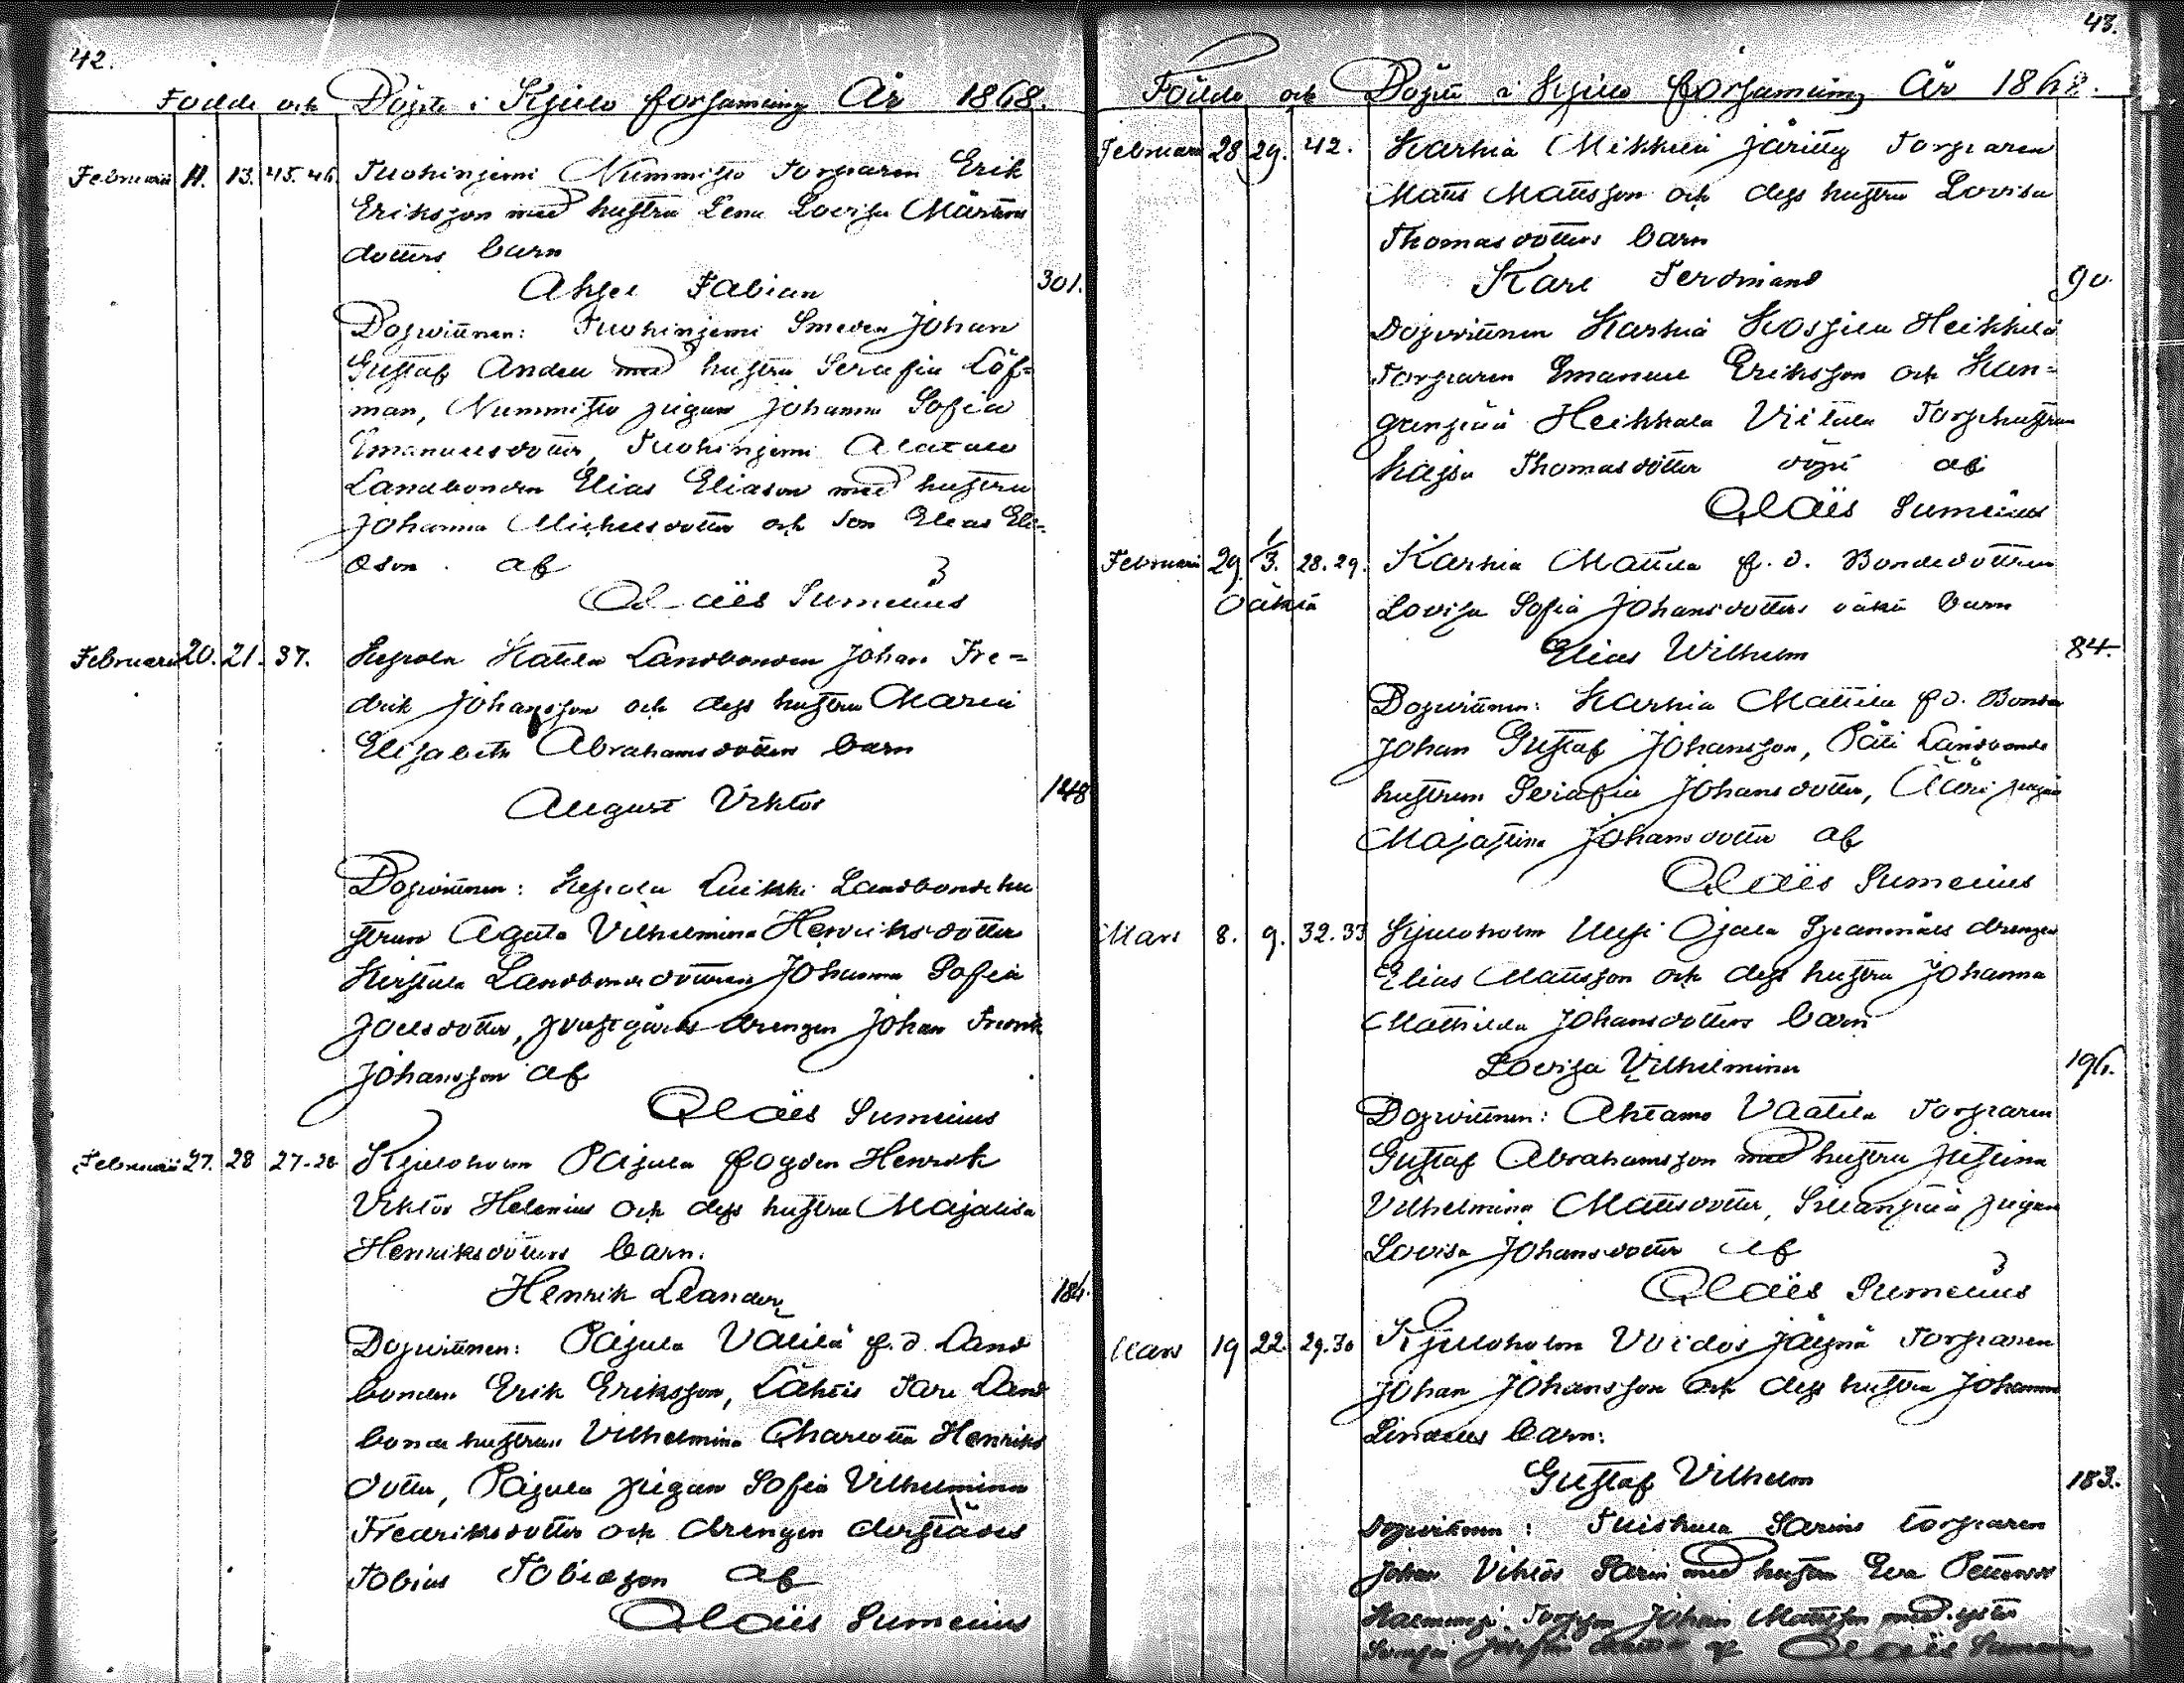 42.
Födde och Döpte i Kjulo församling År 1868.
Februarii 11. 13. 45.46. Tuohiniemi Nummisto Torparen Erik
Eriksson med hustru Lena Lovisa Mårtens
dotters barn
Aksel Fabian 301.
Dopvittnen: Tuohiniemi Smeden Johan
Gustaf Andell med hustru Serafia Löf-
man, Nummisto pigan Johanna Sofia
Emanuelsdotter, Tuohiniemi Alatalo
Landbonden Elias Eliason med hustru
Johanna Michelsdotter och Son Elias Eli-
ason. af
Claës Sumelius
Februarii 20. 21. 37. Kepola Landbonden Johan Fre-
drik Johansson och dess hustru Maria
Elisabeth Abrahamsdotters barn
August Viktor 148
Dopvittnen: Kepola Luikki Landbondehu
strun Agata Vilhelmina Henriksdotter
Landbondedottren Johanna Sofia
Joelsdotter, prestgårds drengen Johan Fredrik
Johansson af
Claës Sumelius
Februarii 27. 28 27-28 Kjuloholm Pajula fogden Henrik
Viktor Helenius och dess hustru Majalisa
Henriksdotters barn.
Henrik Leander 184.
Dopvittnen: Pajula Välilä f.d. Land
bonden Erik Eriksson, Lähteis Land
bonde hustrun Vilhelmina Charlotta Henriks
dotter, Pajula pigan Sofia Vilhelmina
Fredriksdotter och drengen derstädes
Tobias Tobiasson af
Claës Sumelius
43.
Födde och Döpte i Kjulo församling År 1868.
Februarii 28 29. 42. Karhia Mikkola Torparen
Matts Mattsson och dess hustru Lovisa
Thomasdotters barn
Karl Ferdinand 90.
Dopvittnen Karhia Heikkilä
Torparen Emanuel Eriksson och Kan-
Heikkala Torpehustrun
Kajsa Thomasdotter döpt af
Claës Sumelius
Februarii 29. 1/3. 28.29. Karhia Mattila f.d. Bondedottren
Oäkta Lovisa Sofia Johansdotters oäkta barn
Elias Wilhelm 84.
Dopvittnen: Karhia Mattila f.d. Bonden
Johan Gustaf Johansson, Landbonde
hustrun Serafia Johansdotter, pigan
Majastina Johansdotter af
Claës Sumelius
Mars 8. 9. 32.33 Kjuloholm Uusi Ojala Spanmåls drengen
Elias Mattsson och dess hustru Johanna
Mathilda Johansdotters barn
Lovisa Vilhelmina 196.
Dopvittnen: Ahtamo Vaatila Torparen
Gustaf Abrahamsson med hustru Justina
Vilhelmina Mattsdotter, pigan
Lovisa Johansdotter af
Claës Sumelius
Mars 19 22. 29.30 Kjuloholm Torparen
Johan Johansson och dess hustru Johanna
Lindells barn:
Gustaf Vilhelm 183.
Dopvittnen: Tuiskula torparen
Johan Viktor med hustru Eva
Johan Mattsson med syster
af Claës Sumelius